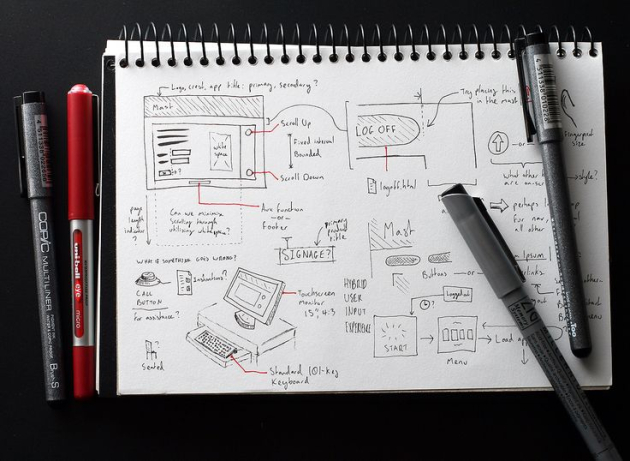 Logo, crest, app title: primary, secondary?
Mast
Scroll Up
white
space
Fixed interval
Bounded
Scroll Down
Aux function
—or—
Footer
page
length
indicator
?
Can we minimize
scrolling through
utilizing whitespace?
LOG OFF
logoff.html
Try placing this
in the mast
Fingerprint
size
—or—
what other
style?
perhaps
for nav,
all other
primary
product
title
SIGNAGE?
Mast
Buttions
—or—
WHAT IF SOMETHING GOES WRONG?
CALL
BUTTON
for assistance?
Instructions?
Touchscreen
monitor
15" 4:3
Standard 101-key
Keyboard
?
Seated
HYBRID
USER
INPUT
EXPERIENCE
?
START
Menu
Load app
COPIC MULTILINER
B S
uni-ball
eye
micro